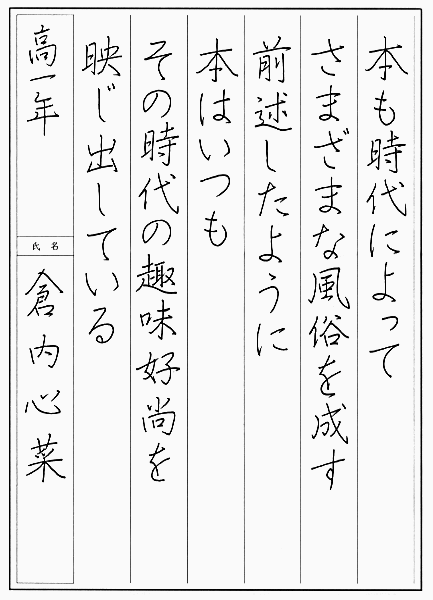 本も時代によって
さまざまな風俗を成す
前述したように
本はいつも
その時代の趣味好尚を
映じ出している
高一年
氏名
倉内心菜